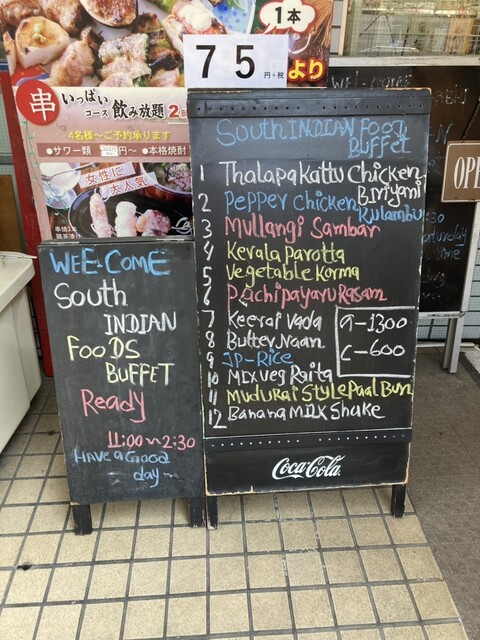 1本
75
円+税
より
串
いっぱい
コース
飲み放題
4名様～ご予約承ります
●サワー類
円～
●本格焼酎
女性に
大人気
WEL-COME
OPE
South INDIAN FOOD
BUFFET
1 Thalapakattu Chicken
Biriyani
2 Pepper Chicken
Kulambu
3 Mullangi Sambar
4 Kerala Parotta
5 Vegetable Korma
6 Pachipayaru Rasam
7 Keerai Vada
8 Butter Naan
9 JP-Rice
10 Mix veg Raita
11 Mudurai Style Paal Bun
12 Banana Milk Shake
a-1300
C-600
Coca-Cola
WEL-COME
South
INDIAN
FOODS
BUFFET
Ready
11:00~2:30
HAVE a Good
day~